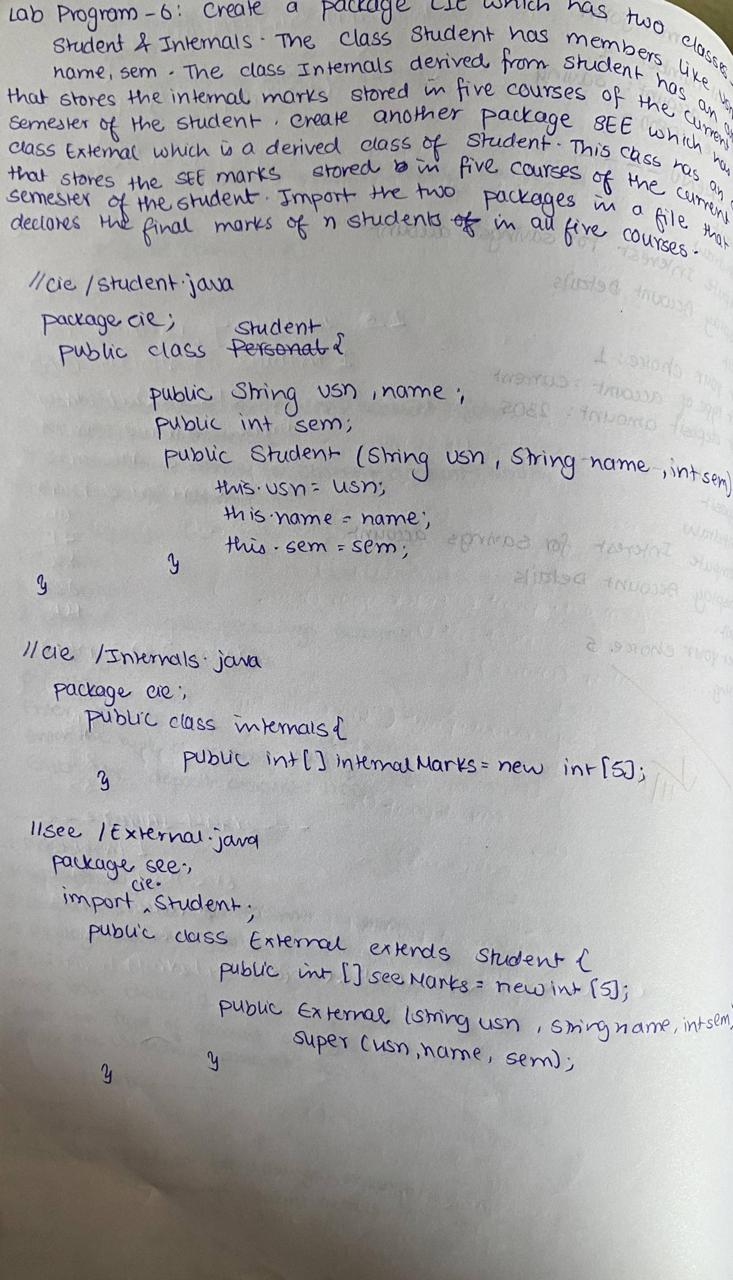 Lab Program - 6: Create a package CIE which has two classes -
Student & Internals. The class Student has members like usn
name, sem. The class Internals derived from student has an
that stores the internal marks stored in five courses of the current
semester of the student. Create another package SEE which has
class External which is a derived class of Student. This class has an
that stores the SEE marks stored in five courses of the current
semester of the student. Import the two packages in a file that
declares the final marks of n students of in all five courses.
//cie /student.java
package cie;
public class Personal Student {
public String usn, name;
public int sem;
public Student (String usn, String name, int sem)
this.usn = usn;
this.name = name;
this.sem = sem;
}
}
//cie /Internals.java
package cie;
public class internals {
public int[] internalMarks = new int[5];
}
//see /External.java
package see;
import cie.Student;
public class External extends Student {
public int [] seeMarks = new int [5];
public External (String usn, String name, int sem)
super (usn, name, sem);
}
}